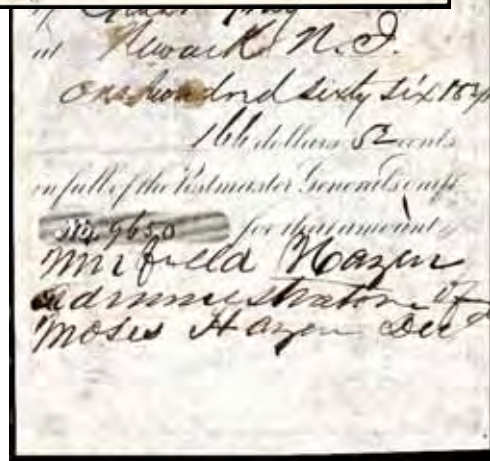 at Newark N.J.
One hundred sixty six 52/100
166 dollars 52 cents
in full of the Postmaster General's
No. 9650 for that amount
Winfield Hazen
administrator of
Moses Hazen Decd